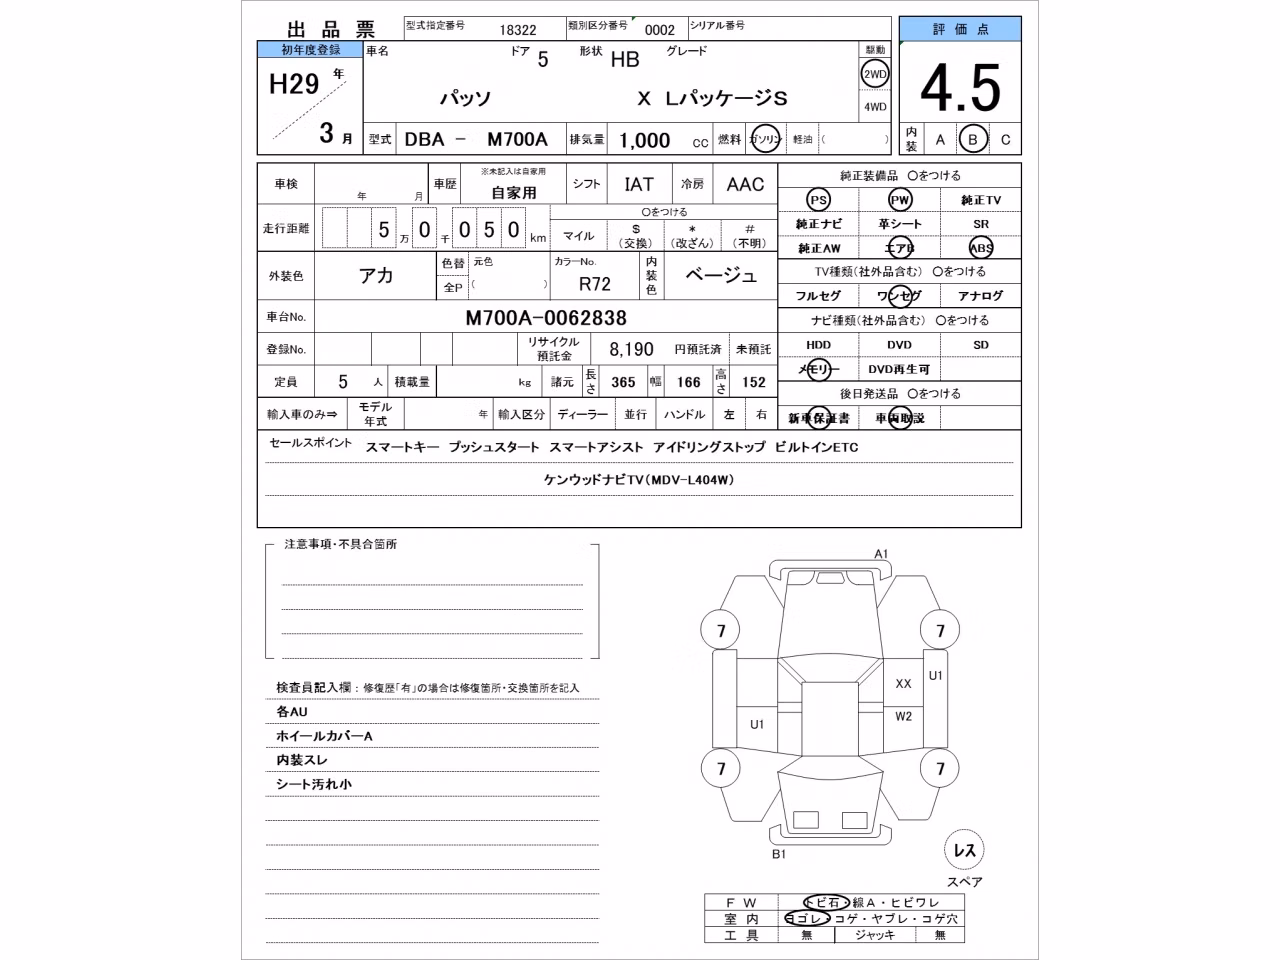 出 品 票
型式指定番号 18322 類別区分番号 0002 シリアル番号
評 価 点
初年度登録
車名 ドア 5 形状 HB グレード 駆動
H29 年
3 月
パッソ X LパッケージS
2WD
4WD
4.5
型式 DBA - M700A 排気量 1,000 cc 燃料 ガソリン 軽油 ( )
内装 A B C
車検 年 月 車歴 ※未記入は自家用 自家用 シフト IAT 冷房 AAC
走行距離 5 万 0 千 0 5 0 km
○をつける
マイル $ (交換) * (改ざん) # (不明)
外装色 アカ 色替 元色 全P ( ) カラーNo. R72 内装色 ベージュ
車台No. M700A-0062838
登録No. リサイクル預託金 8,190 円預託済 未預託
定員 5 人 積載量 kg 諸元 長さ 365 幅 166 高さ 152
輸入車のみ⇒ モデル年式 年 輸入区分 ディーラー 並行 ハンドル 左 右
純正装備品 ○をつける
PS PW 純正TV
純正ナビ 革シート SR
純正AW エアB ABS
TV種類(社外品含む) ○をつける
フルセグ ワンセグ アナログ
ナビ種類(社外品含む) ○をつける
HDD DVD SD
メモリー DVD再生可
後日発送品 ○をつける
新車保証書 車両取説
セールスポイント スマートキー プッシュスタート スマートアシスト アイドリングストップ ビルトインETC
ケンウッドナビTV(MDV-L404W)
注意事項・不具合箇所
検査員記入欄 : 修復歴「有」の場合は修復箇所・交換箇所を記入
各AU
ホイールカバーA
内装スレ
シート汚れ小
A1
7 7
U1
XX
W2
U1
7 7
B1
レス
スペア
F W トビ石・線A・ヒビワレ
室 内 ヨゴレ・コゲ・ヤブレ・コゲ穴
工 具 無 ジャッキ 無